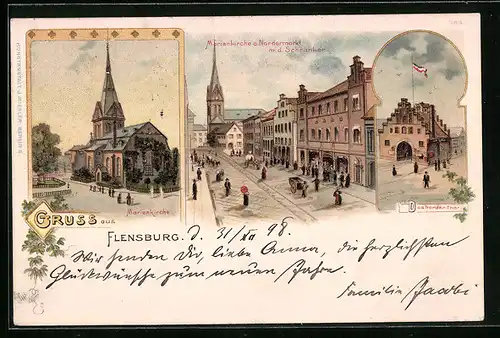 Marienkirche u. Nordermarkt
m. d. Schrangen.
Marienkirche
Das Nordertor
GRUSS aus
FLENSBURG. d. 31/XII 98.
Wir senden Dir, liebe Anna, die herzlichsten
Glückwünsche zum neuen Jahre.
Familie Jacobi